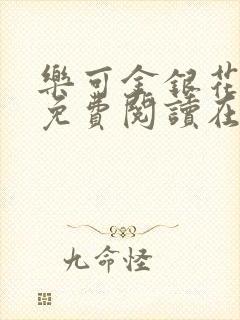 樂可金銀花
免費閱讀在
九命怪